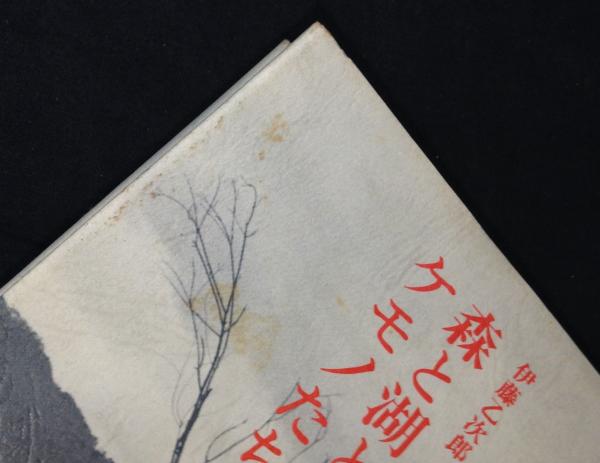 伊藤乙次郎
森と湖と
ケモノたち